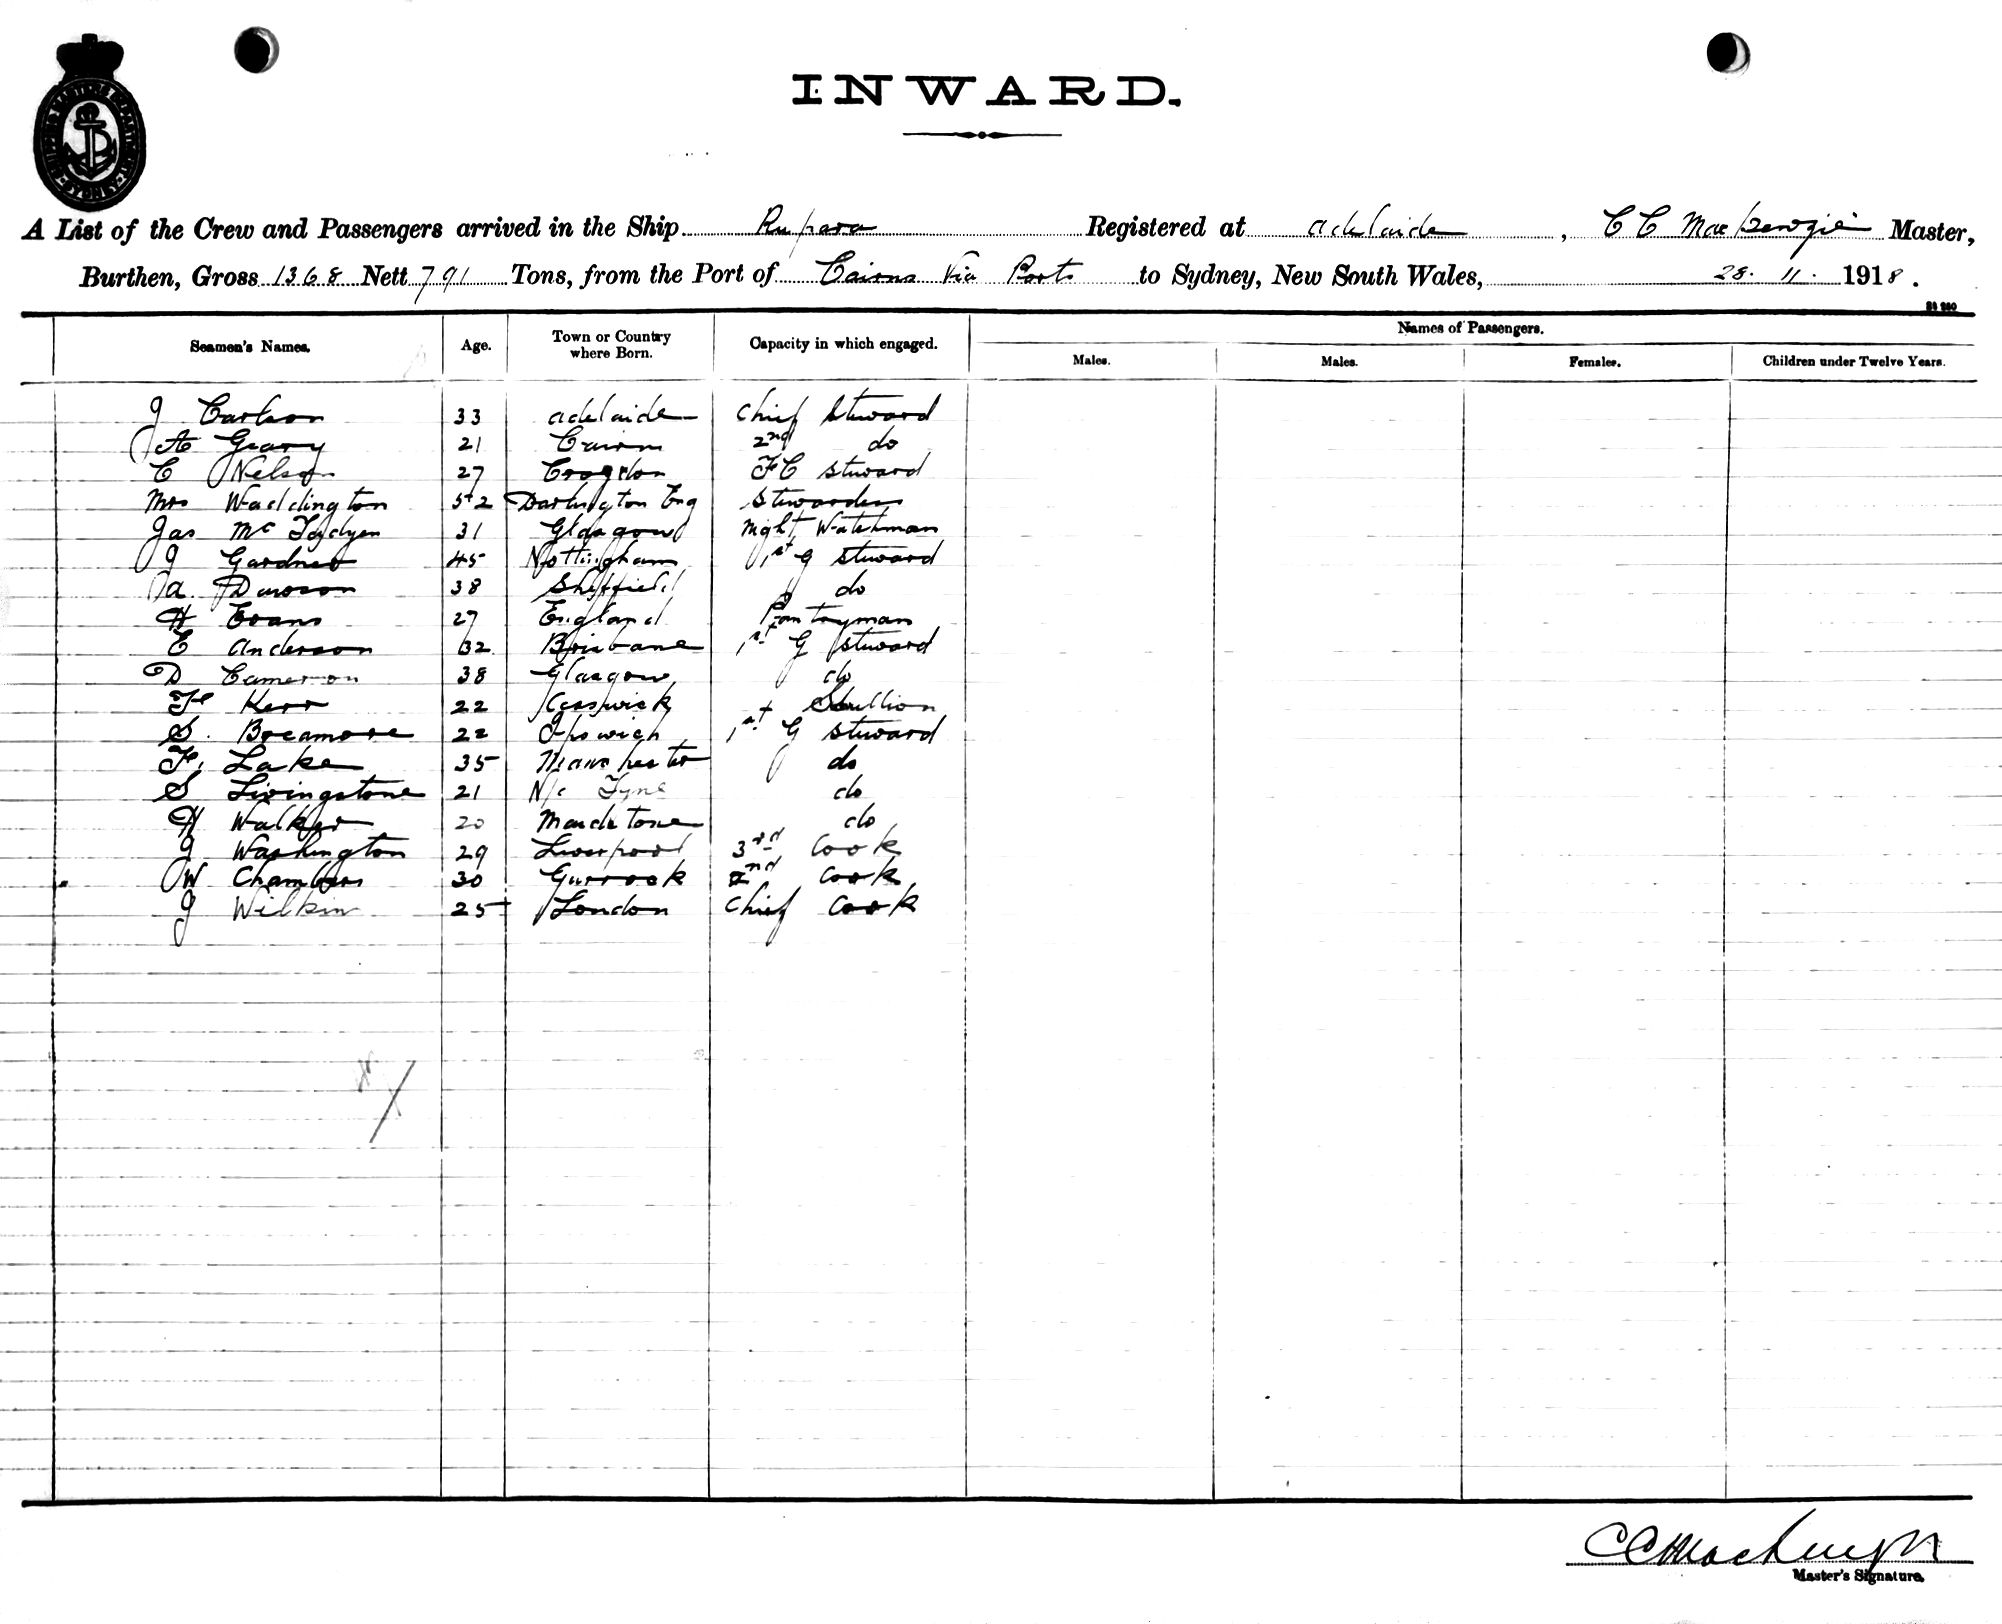 SHIPPING MASTERS DEPARTMENT SYDNEY
INWARD.
A List of the Crew and Passengers arrived in the Ship Rupara Registered at Adelaide, C C MacKenzie Master,
Burthen, Gross 1368 Nett 791 Tons, from the Port of Cairns Via Ports to Sydney, New South Wales, 28. 11. 1918.
Names of Passengers.
Seamen's Names. Age. Town or Country where Born. Capacity in which engaged. Males. Males. Females. Children under Twelve Years.
J Carlson 33 Adelaide Chief Steward
A Geary 21 Cairns 2nd do
C Nelson 27 Croydon FC Steward
Mrs Waddington 52 Darlington Eng Stewardess
Jas Mc 31 Glasgow Night Watchman
J Gardner 45 Nottingham 1st G Steward
A. Dawson 38 Sheffield do
H Evans 27 England Pantryman
E Anderson 32 Brisbane 1st G Steward
D Cameron 38 Glasgow do
F Kerr 22 Keswick Scullion
S. Breamore 22 Ipswich 1st G Steward
F. Lake 35 Manchester do
S Livingstone 21 N/c Tyne do
H Walker 20 Maidstone do
J Washington 29 Liverpool 3rd Cook
W Chambers 30 Gurrock 2nd Cook
J Wilkin 25 London Chief Cook
C C MacKenzie
Master's Signature.